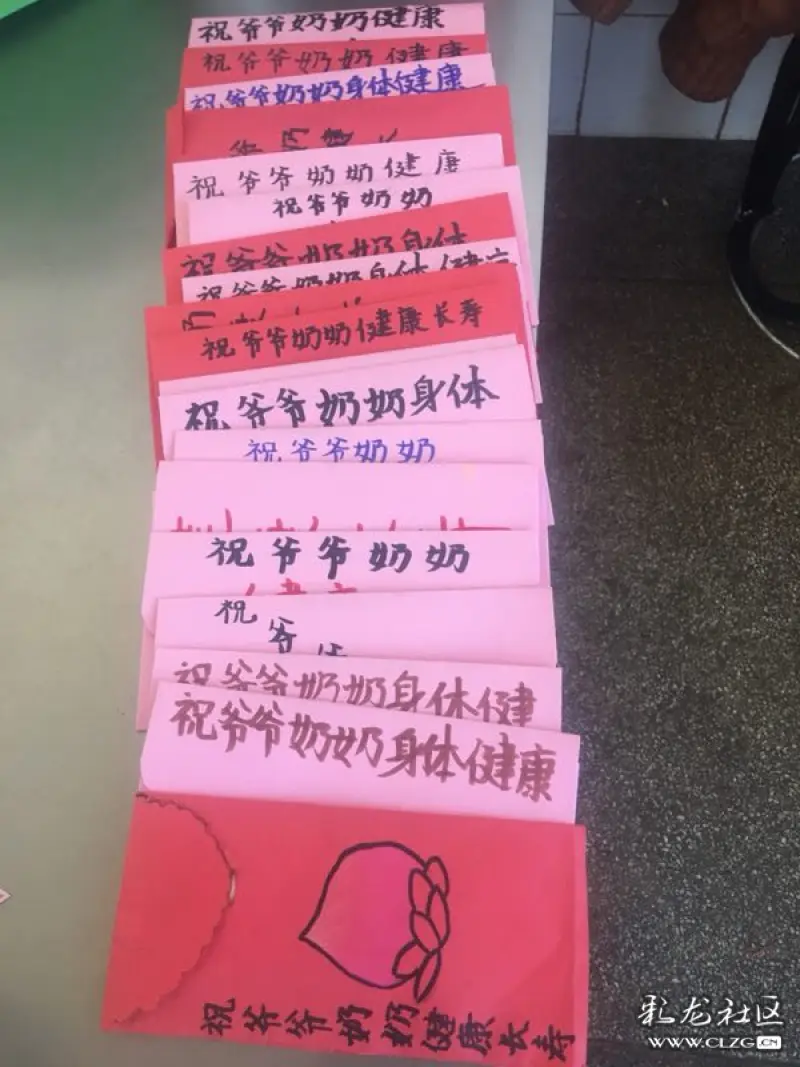 祝爷爷奶奶健康
祝爷爷奶奶健康
祝爷爷奶奶身体健康
祝爷爷奶奶健康
祝爷爷奶奶
祝爷爷奶奶身体
祝爷爷奶奶身体健康
祝爷爷奶奶健康长寿
祝爷爷奶奶身体
祝爷爷奶奶
祝爷爷奶奶
健康
祝
爷
祝爷爷奶奶身体健
祝爷爷奶奶身体健康
祝爷爷奶奶健康长寿
彩龙社区
www.CLZG.CN